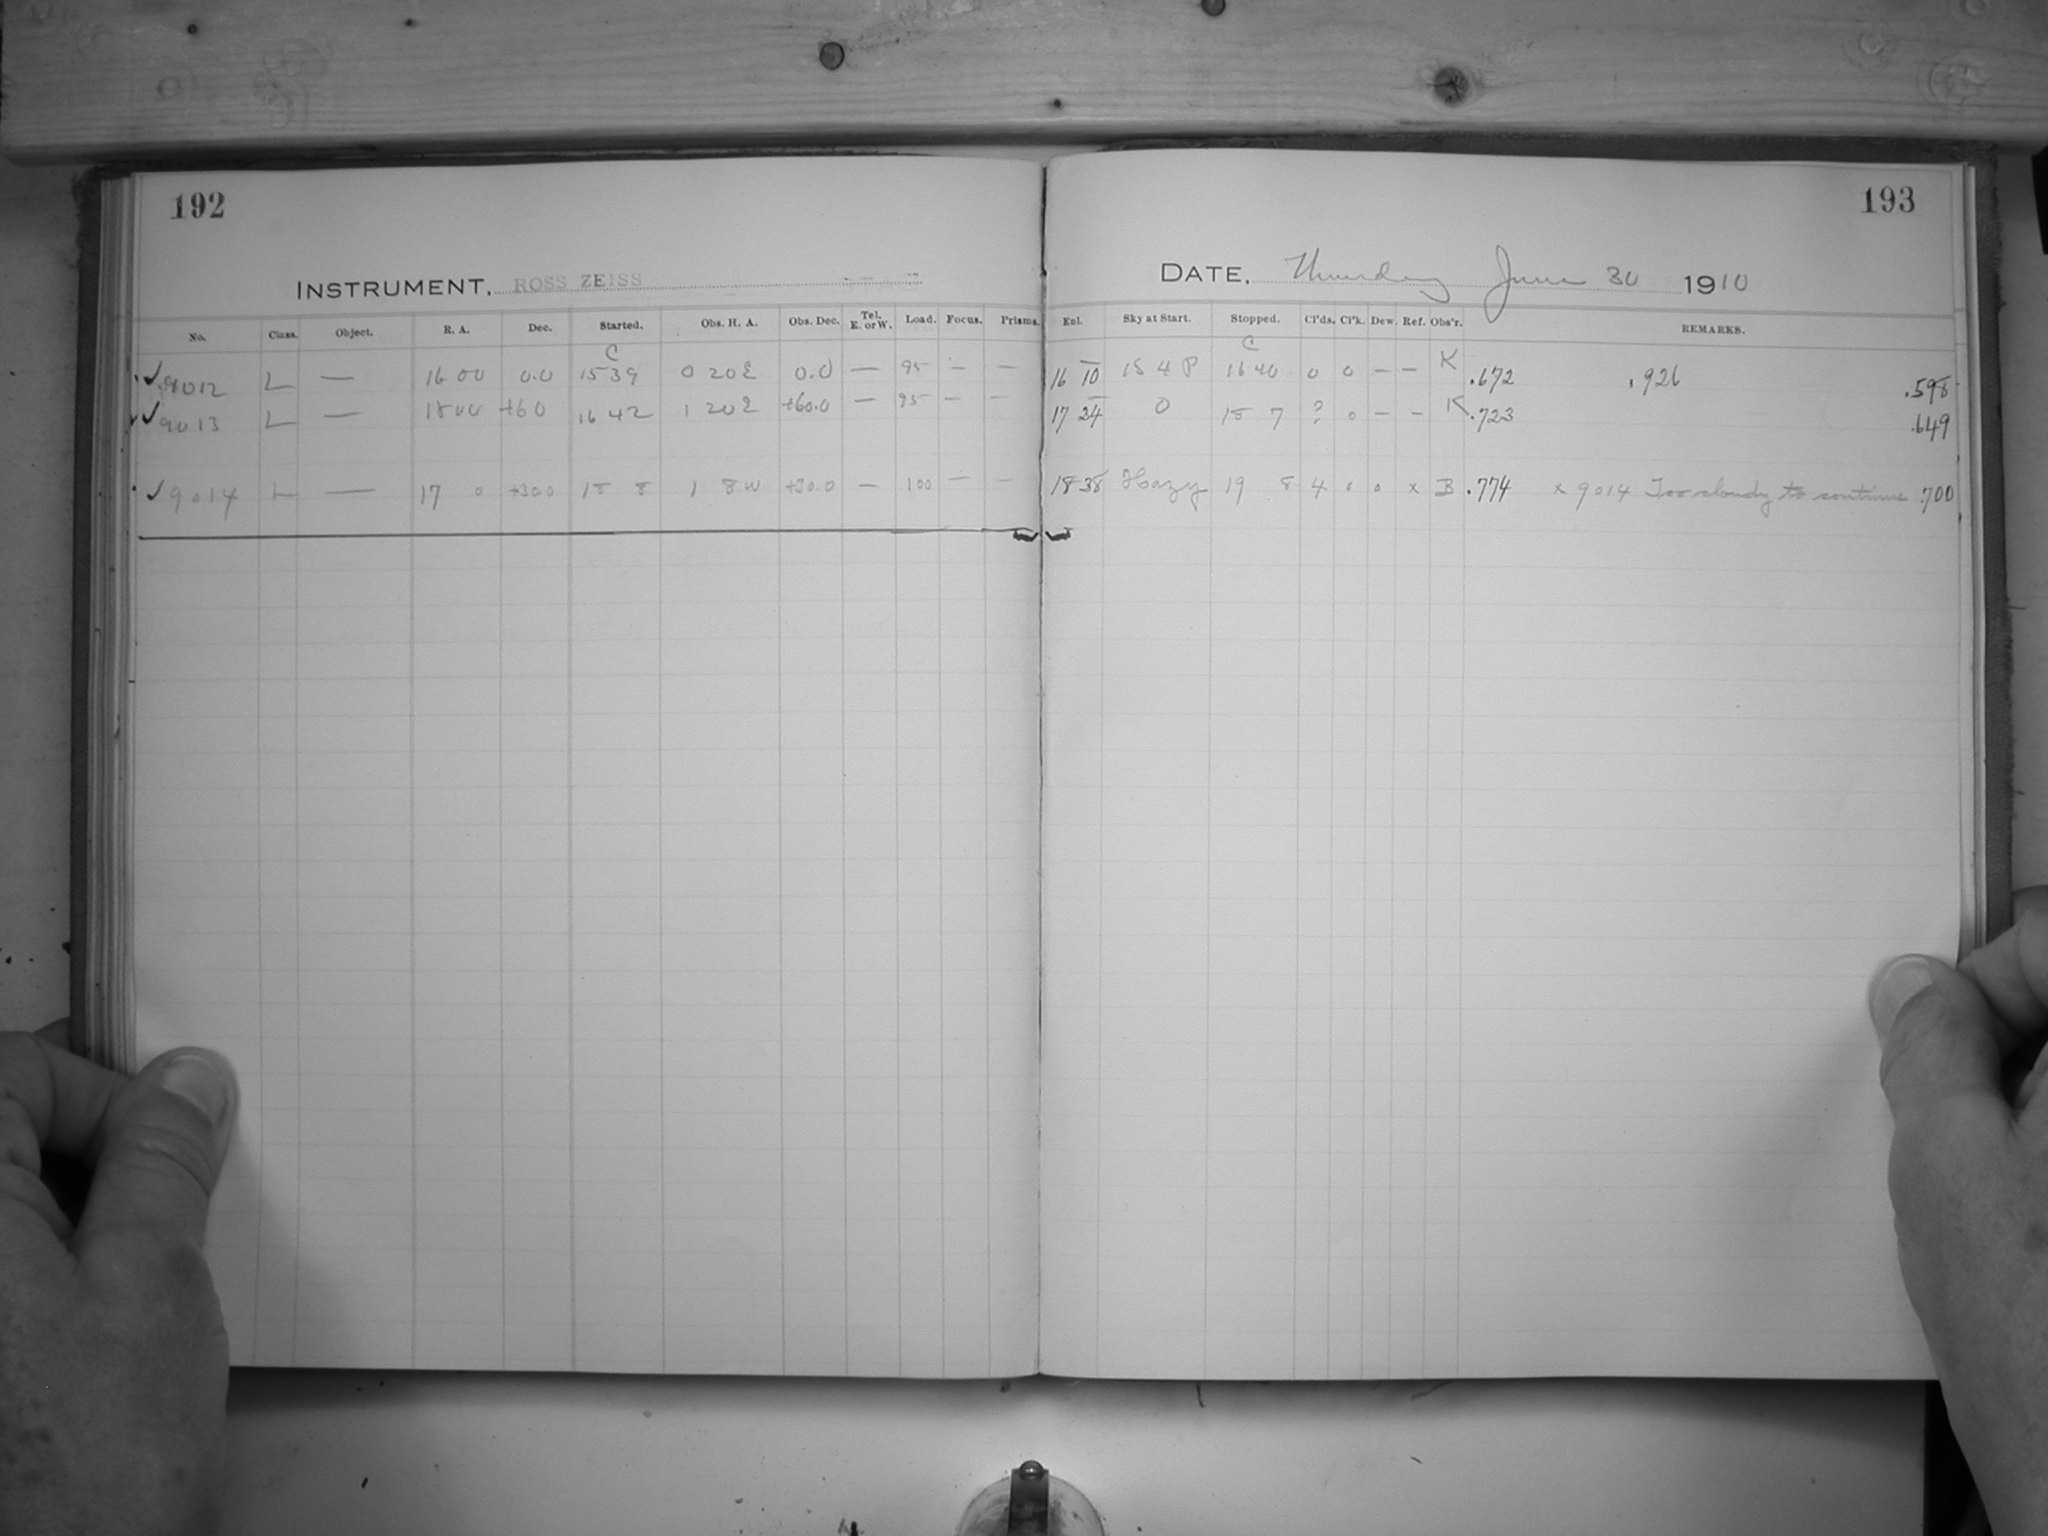 192
INSTRUMENT, ROSS ZEISS
No. Class. Object. R. A. Dec. Started. Obs. H. A. Obs. Dec. Tel. E. or W. Load. Focus. Prisms.
✓ 9012 L — 16 00 0.0 C 15 39 0 20 E 0.0 — 95 — —
✓ 9013 L — 18 00 +60 16 42 1 20 E +60.0 — 95 — —
✓ 9014 L — 17 0 +30.0 18 8 1 8 W +30.0 — 100 — —
193
DATE, Thursday June 30 1910
Enl. Sky at Start. Stopped. Cl'ds. Cl'k. Dew. Ref. Obs'r. REMARKS.
16 10 15 4 P C 16 40 0 0 — — K .672 .926 .598
17 24 0 18 7 ? 0 — — K .723 .649
18 38 Hazy 19 8 4 0 0 x B .774 x 9014 Too cloudy to continue .700